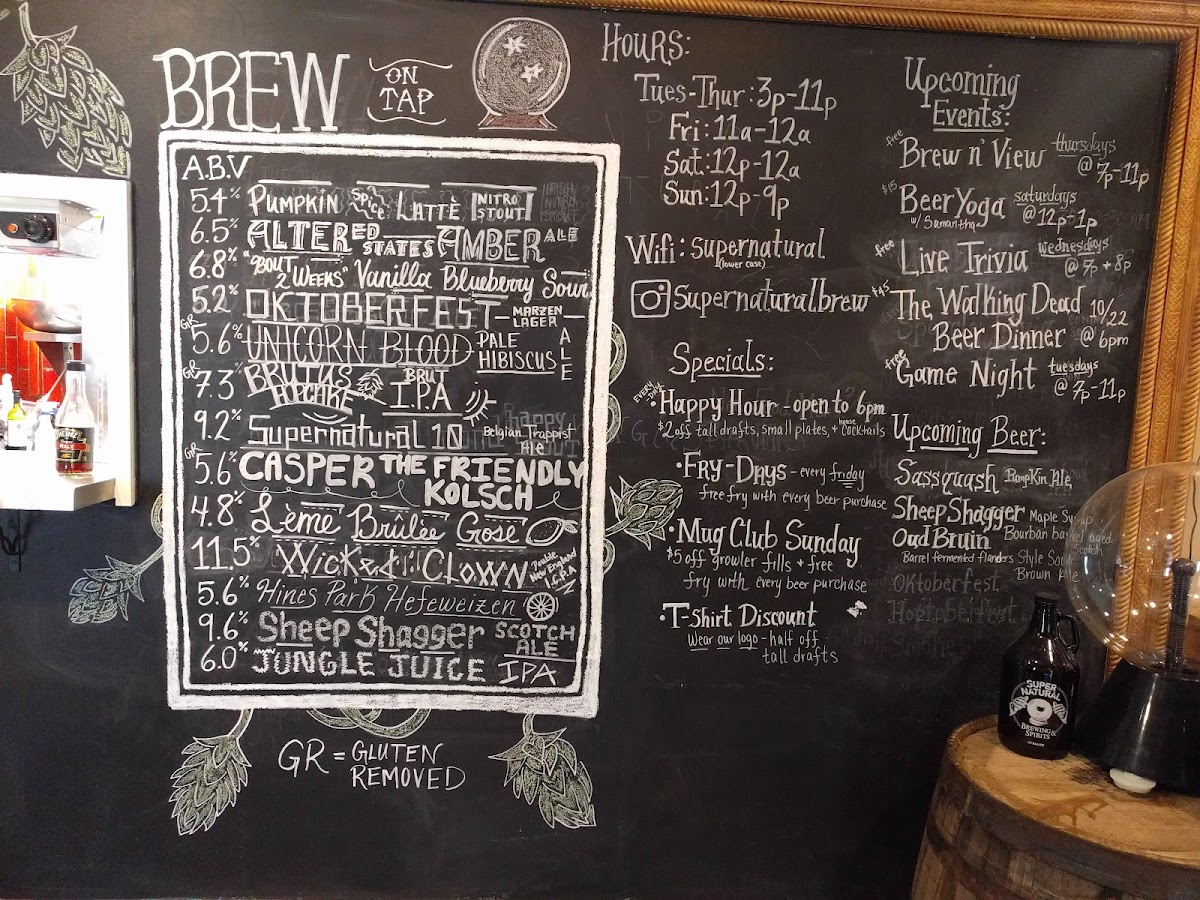 BREW
ON
TAP
A.B.V
5.4% PUMPKIN SPICE LATTÈ NITRO STOUT
6.5% ALTERED STATES AMBER ALE
6.8% "'BOUT 2 WEEKS" Vanilla Blueberry Sour
5.2% OKTOBERFEST - MARZEN LAGER -
GR 5.6% UNICORN BLOOD PALE HIBISCUS ALE
GR 7.3% BRUTUS HOPCAKE BRUT I.P.A
9.2% Supernatural 10 Belgian Trappist Ale
GR 5.6% CASPER THE FRIENDLY KOLSCH
4.8% Lème Brûlèe Gose
11.5% WICKED Lil' CLOWN Double New England I.P.A
5.6% Hines Park Hefeweizen
9.6% Sheep Shagger SCOTCH ALE
6.0% JUNGLE JUICE IPA
GR = GLUTEN
REMOVED
HOURS:
Tues-Thur: 3p-11p
Fri: 11a-12a
Sat: 12p-12a
Sun: 12p-9p
Wifi: supernatural
(lower case)
Supernaturalbrew
Specials:
EVERY DAY
• Happy Hour - open to 6pm
$2 off tall drafts, small plates, + house cocktails
• FRY-DAYS - every friday
free fry with every beer purchase
• Mug Club Sunday
$5 off growler fills & free
fry with every beer purchase
• T-Shirt Discount
Wear our logo - half off
tall drafts
Upcoming
Events:
free Brew n' View thursdays
@ 7p-11p
$15 Beer Yoga saturdays
w/ Samantha @ 12p-1p
free Live Trivia wednesdays
@ 7p + 8p
$45 The Walking Dead 10/22
Beer Dinner @ 6pm
free Game Night tuesdays
@ 7p-11p
Upcoming Beer:
Sassquash PumpKin Ale
Sheep Shagger Maple Syrup
Bourban barrel aged
Scotch
Oud Bruin
Barrel fermented flanders Style Sour
Brown Ale
Oktoberfest
SUPER
NATURAL
BREWING &
SPIRITS
HEINZ
MALT